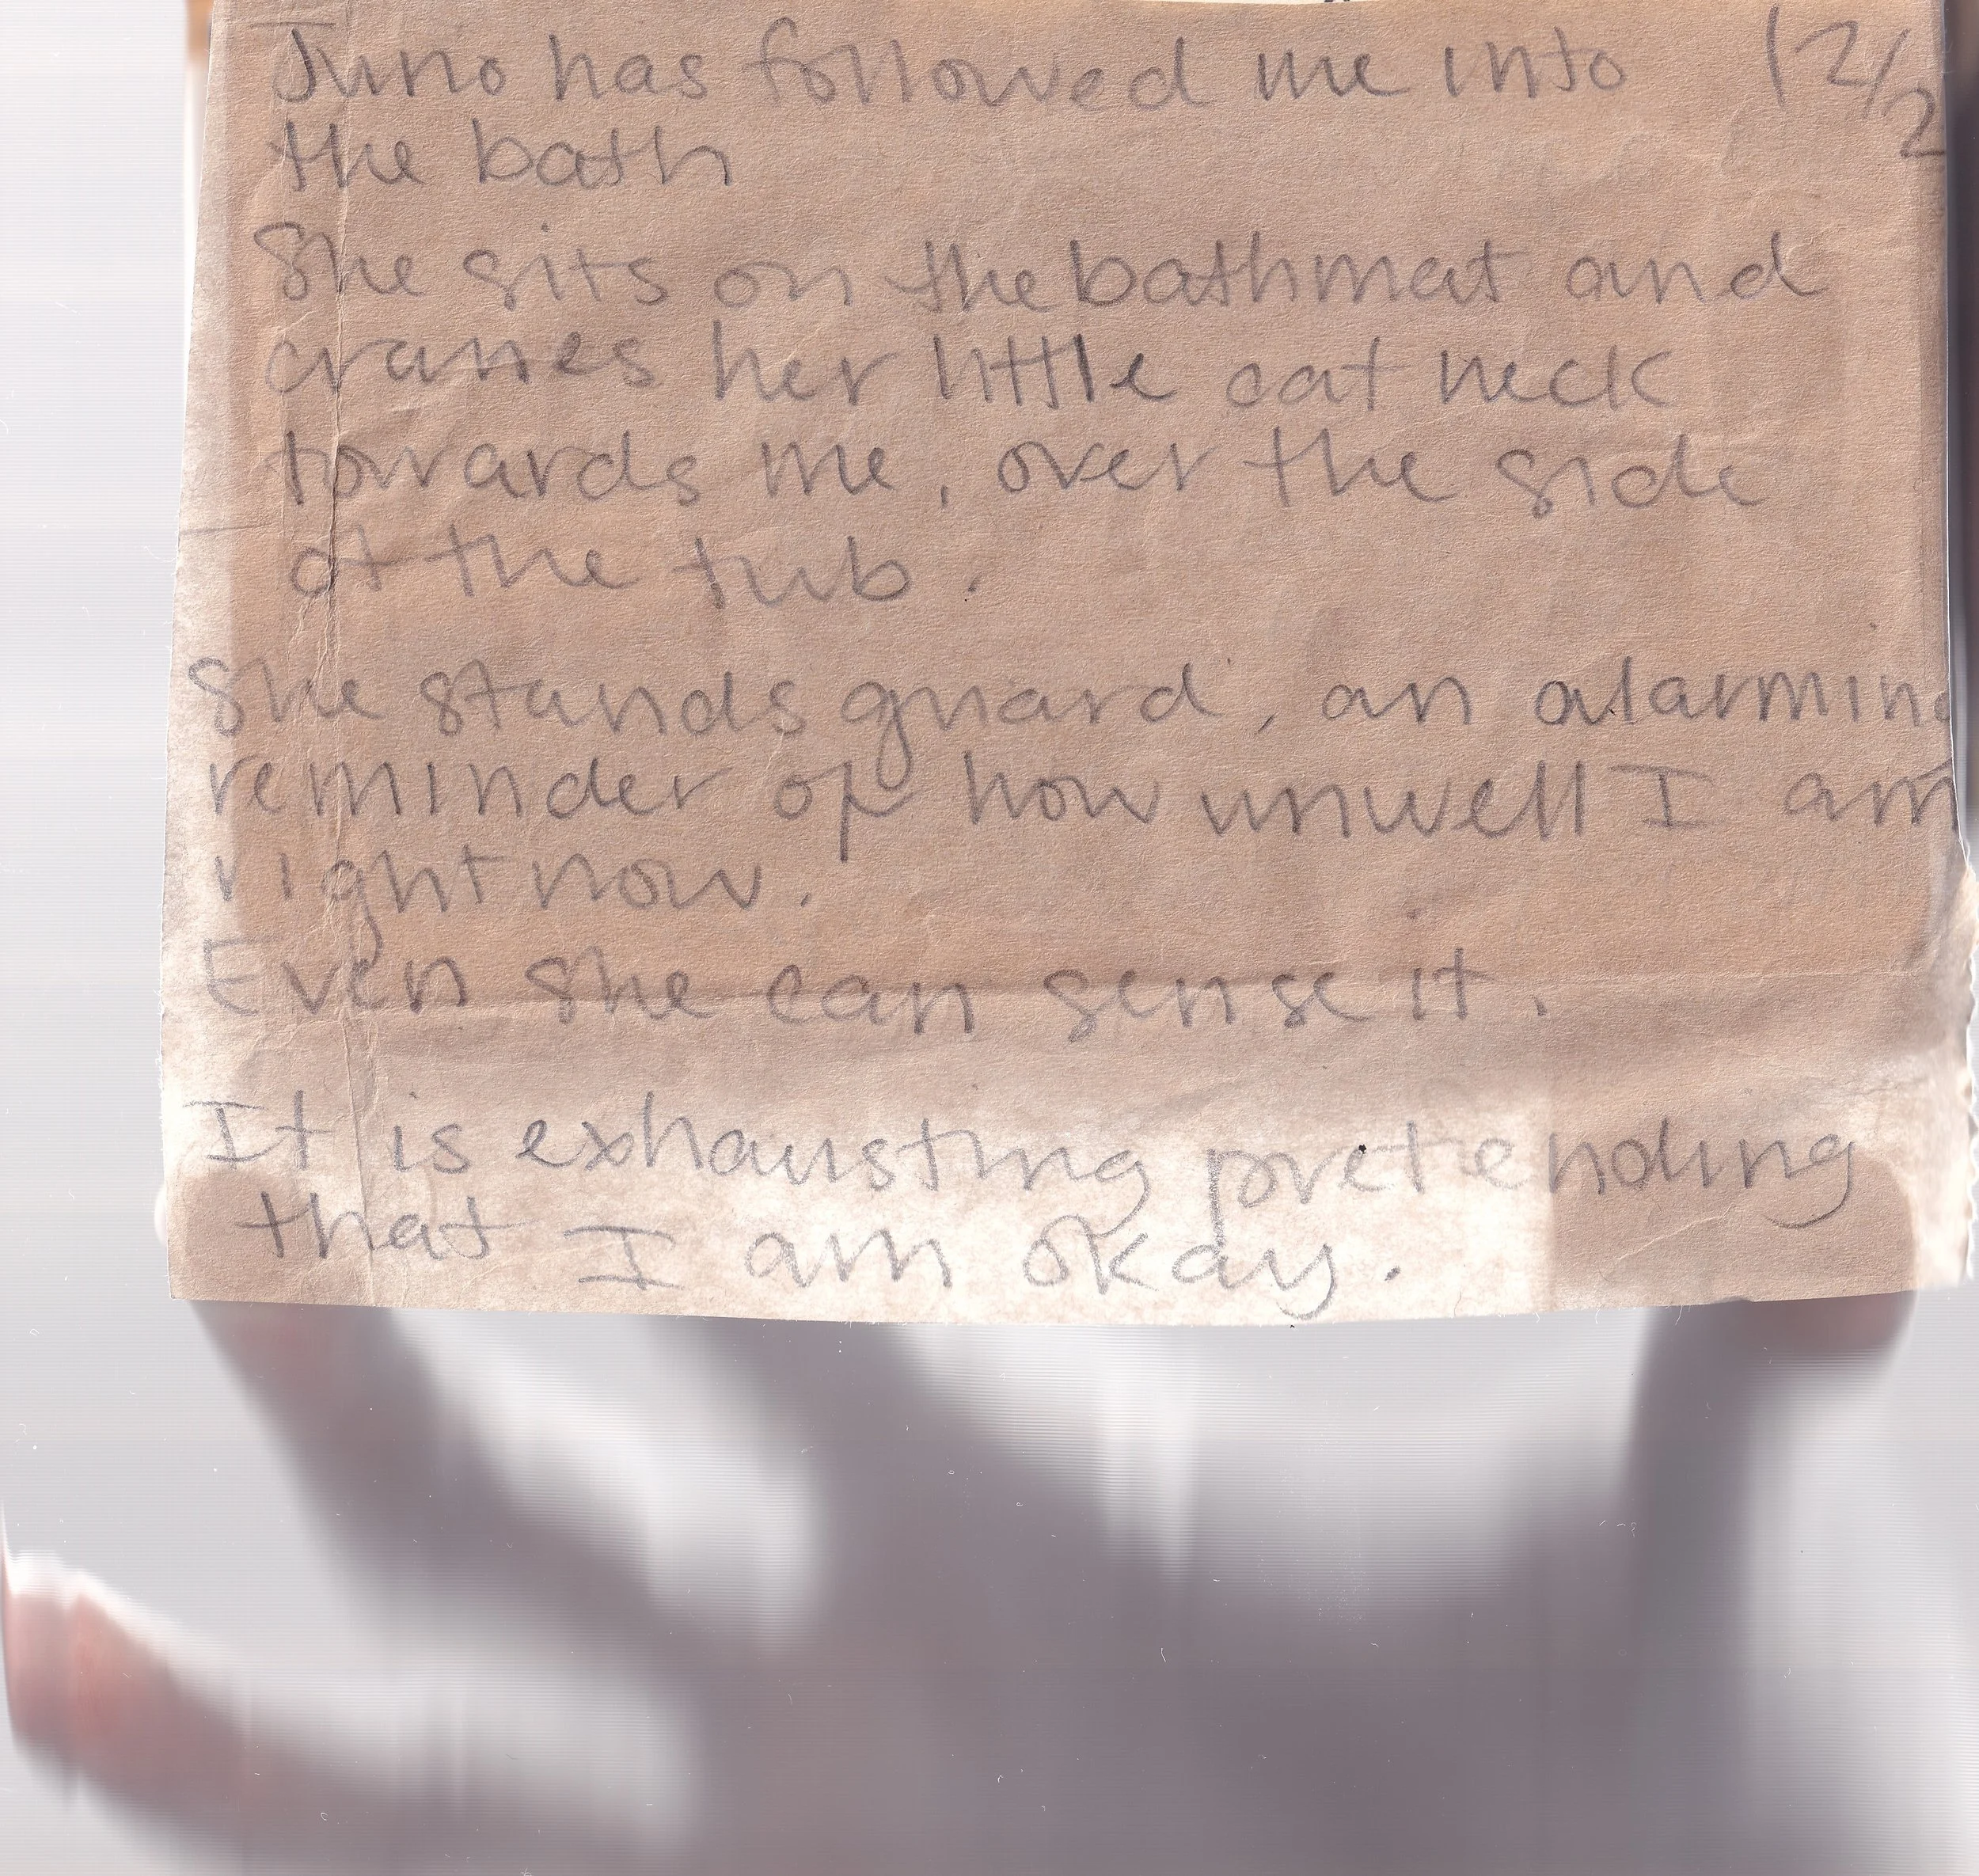 Juno has followed me into 12/2
the bath
She sits on the bathmat and
cranes her little cat neck
towards me, over the side
of the tub.
She stands guard, an alarming
reminder of how unwell I am
right now.
Even she can sense it.
It is exhausting pretending
that I am okay.